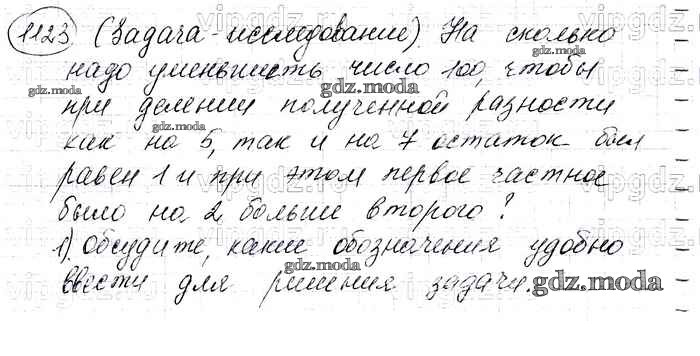 1123 (Задача-исследование) На сколько
надо уменьшить число 100, чтобы
при делении полученной разности
как на 5, так и на 7 остаток был
равен 1 и при этом первое частное
было на 2 больше второго?
1) Обсудите, какие обозначения удобно
ввести для решения задачи.
gdz.moda
gdz.moda
gdz.moda
gdz.moda
gdz.moda
gdz.moda
gdz.moda
vipgdz.ru